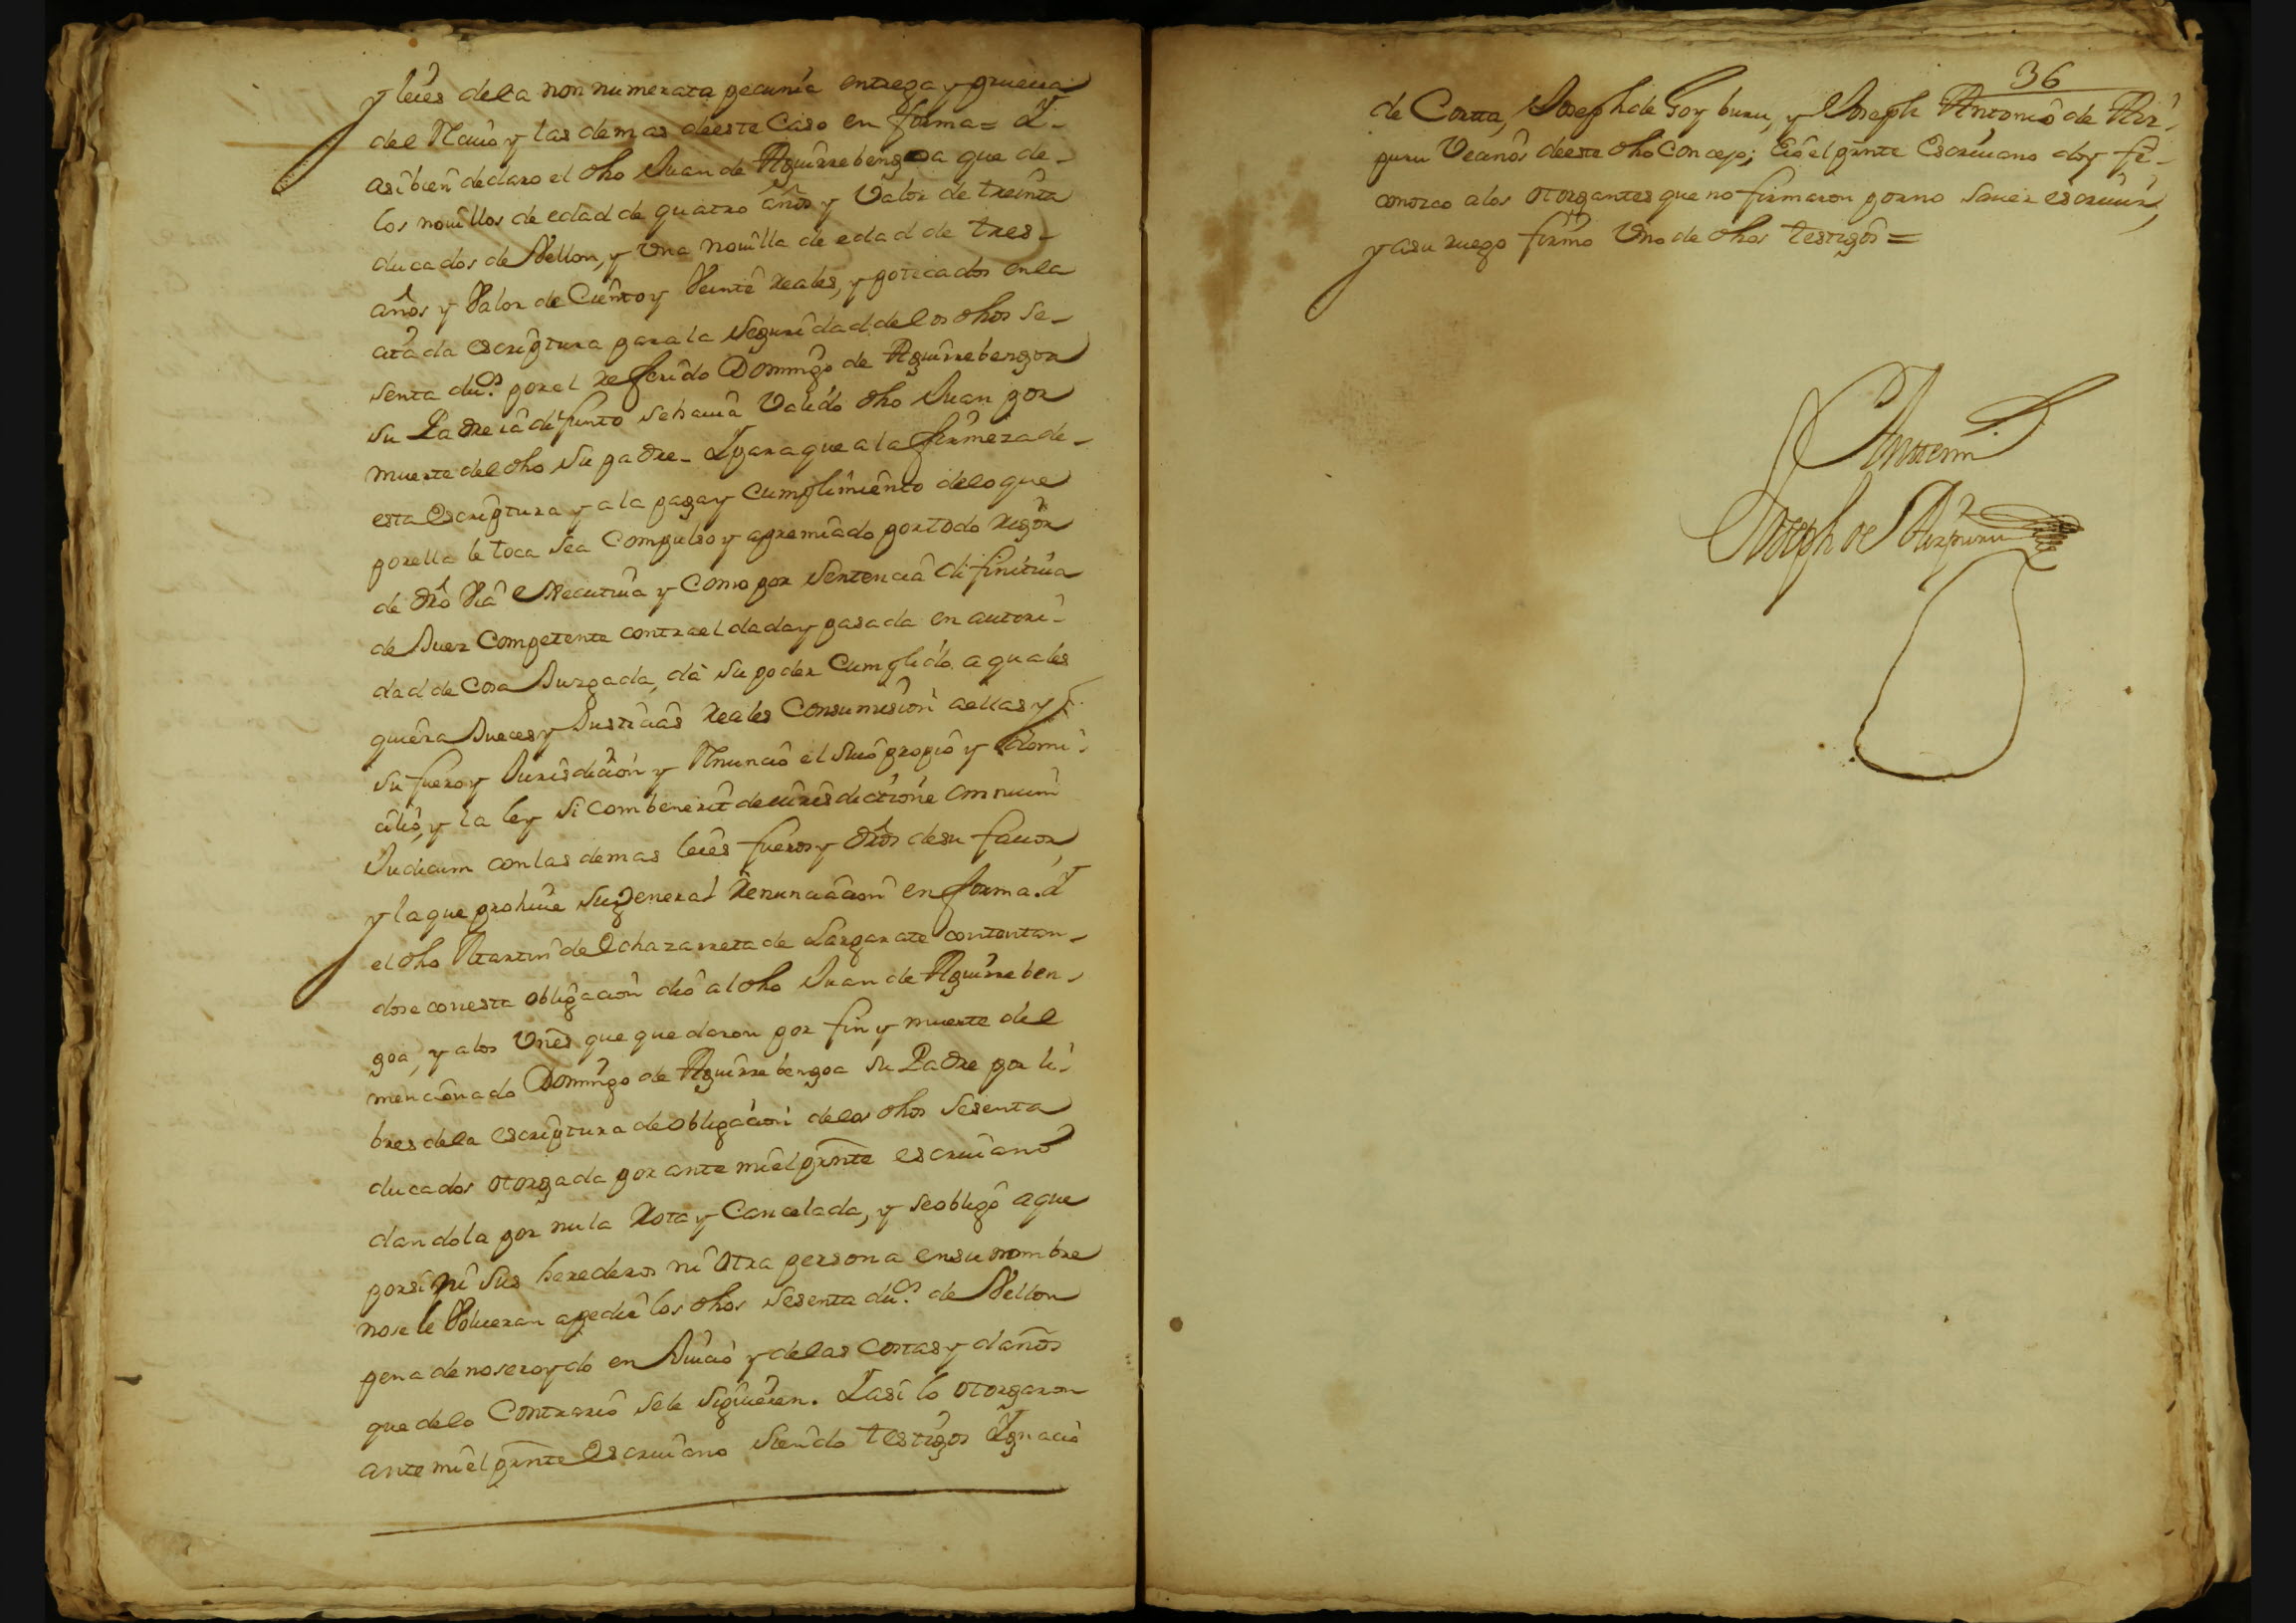 y leies dela non numerata pecunia entrega y prueua
del Reciuo y las demas deeste Caso en forma = Y
asibien declaro el dho Juan de Aguirrebengoa que de
los nouillos de edad de quatro años y Valor de treinta
ducados de Vellon, y Vna nouilla de edad de tres
años y Valor de Ciento y Veinte Reales, ypotecados enla
citada escriptura para la Seguridad delos dhos Se
senta dus. por el Referido Domingo de Aguirrebengoa
su Padre ia difunto sehauia Valido dho Juan por
muerte del dho su padre. Y para que a la firmeza de
esta Escriptura y a la paga y Cumplimiento delo que
por ella le toca sea Compulso y apremiado por todo Rigor
de dro Via executiua y Como por Sentencia difinitiua
de Juez Competente contra el dada y pasada en autori
dad de Cosa Juzgada, dà su poder Cumplido a quales
quiera Jueces y Justicias Reales Consumision aellas y
su fuero y Jurisdicion y Renuncio el suio propio y Domi
cilio, y la ley Si combenerit de iurisdictione omnium
Judicum con las demas leies fueros y dros desu fauor
y la que prohiue su general Renunciacion en forma. Y
el dho Martin de Echazarreta de Largarate contentan
dose con esta obligacion dió al dho Juan de Aguirreben
goa, y alos Vnes que quedaron por fin y muerte del
mencionado Domingo de Aguirrebengoa su Padre por li
bres dela escriptura de obligacion delos dhos Sesenta
ducados otorgada por ante mi el prnte escriuano
dandola por nula Rota y Cancelada, y seobligo aque
porsi ni sus herederos ni otra persona ensu nombre
nosele Volueran apedir los dhos Sesenta dus. de Vellon
pena de noseroydo en Juicio y delas Costas y daños
que delo Contrario sele siguieren. Yasi lo otorgaron
ante mi el prnte Escriuano siendo testigos Ygnacio
36
de Cortta, Joseph de Goyburu, y Joseph Antonio de Aiz
puru Vecinos deeste dho Concejo; Eio el prnte Escriuano doy fe
conozco alos otorgantes que no firmaron por no Sauer escriuir,
y asu ruego firmo Vno de dhos testigos =
Antemi
Joseph de Aizpuru